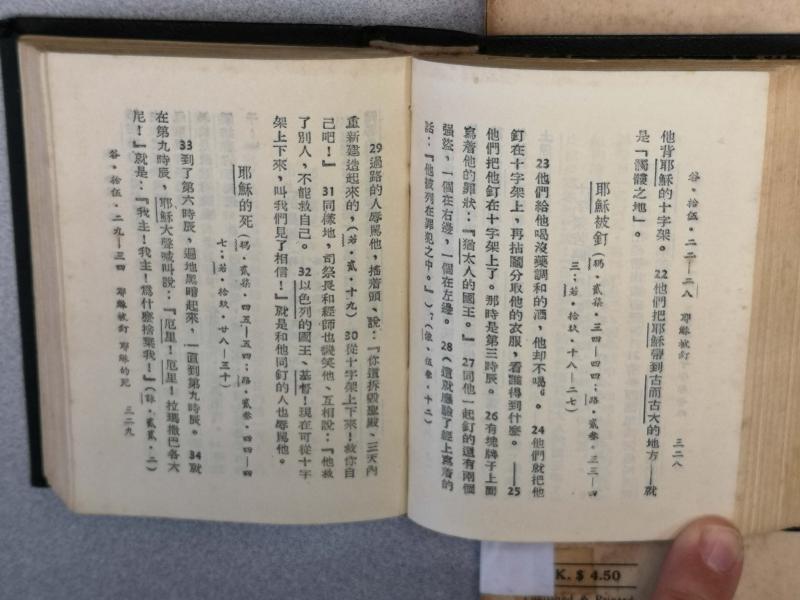 谷·拾伍·二二—二八 耶穌被釘 三二八
他背耶穌的十字架。 22他們把耶穌帶到古而古大的地方——就
是「髑髏之地」。
耶穌被釘(瑪·貳柒·三四—四四;路·貳叁·三三—四
三;若·拾玖·十八—二七)
23他們給他喝沒藥調和的酒,他却不喝。 24他們就把他
釘在十字架上,再拈鬮分取他的衣服,看誰得到什麼。——25
他們把他釘在十字架上了。那時是第三時辰。 26有塊牌子上面
寫着他的罪狀:『猶太人的國王。』 27同他一起釘的還有兩個
強盜,一個在右邊,一個在左邊。 28(這就應驗了經上寫着的
話:『他被列在罪犯之中。』)(依·伍叁·十二)
29過路的人辱罵他,搖着頭、說:『你這拆毀聖殿、三天內
重新建造起來的,(若·貳·十九) 30從十字架上下來!救你自
己吧!』 31同樣地,司祭長和經師也譏笑他,互相說:『他救
了別人,不能救自己。 32以色列的國王、基督!現在可從十字
架上下來,叫我們見了相信!』就是和他同釘的人也辱罵他。
耶穌的死(瑪·貳柒·四五—五四;路·貳叁·四四—四
七;若·拾玖·廿八—三十)
33到了第六時辰,遍地黑暗起來,一直到第九時辰。 34就
在第九時辰,耶穌大聲喊叫說:『厄里!厄里!拉瑪撒巴各大
尼!』就是:『我主!我主!爲什麼捨棄我!』(詠·貳貳·二)
谷·拾伍·二九—三四 耶穌被釘 耶穌的死 三二九
K. $ 4.50